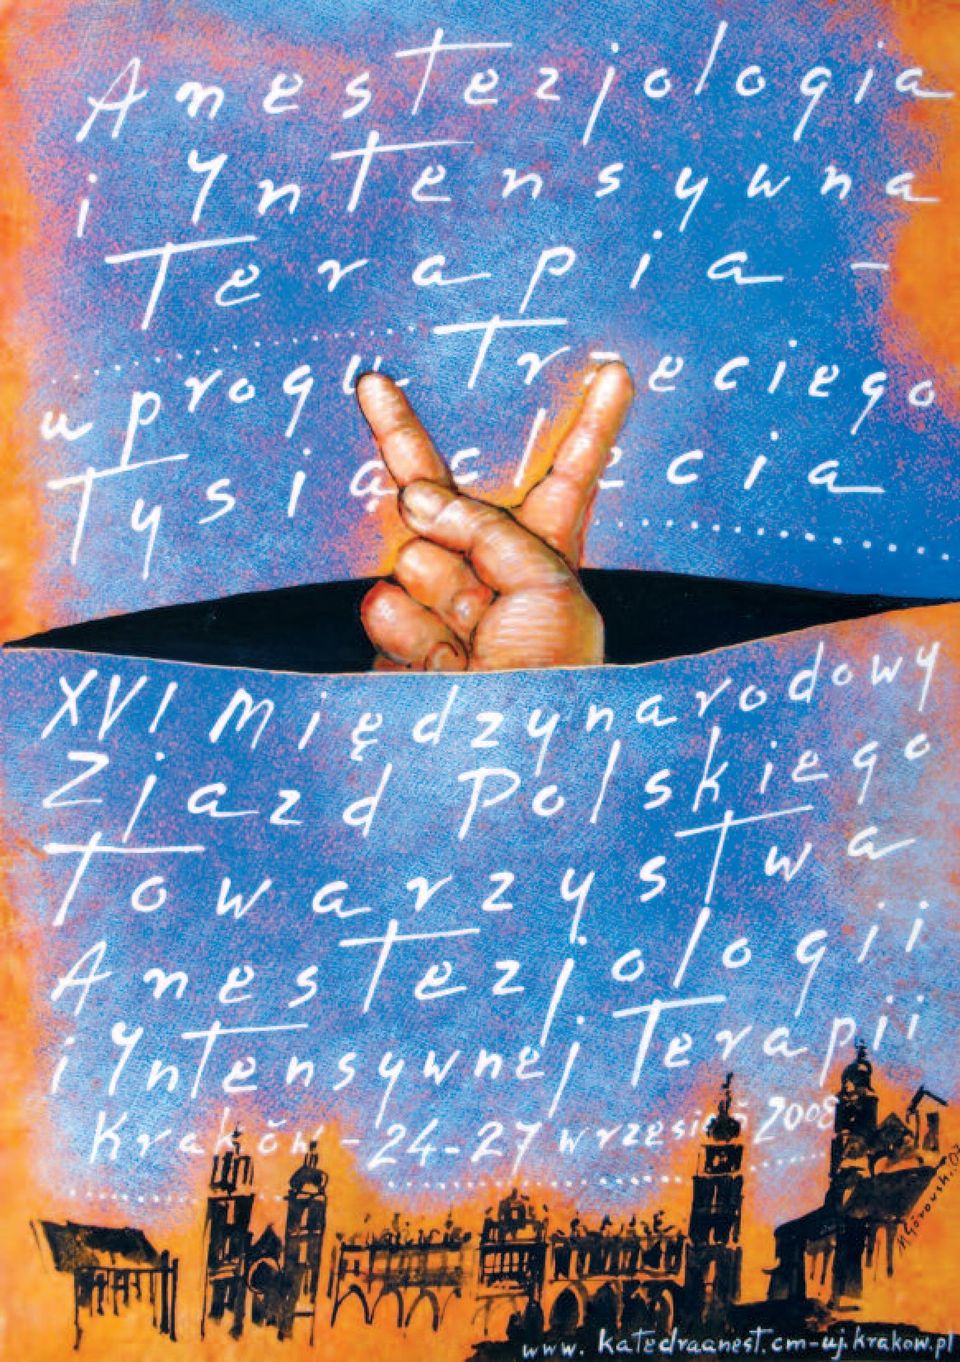 Anestezjologia
i Intensywna
Terapia -
u progu Trzeciego
Tysiąclecia
XVI Międzynarodowy
Zjazd Polskiego
Towarzystwa
Anestezjologii
i Intensywnej Terapii
Kraków - 24-27 września 2008
Górowski.07
www.katedraanest.cm-uj.krakow.pl